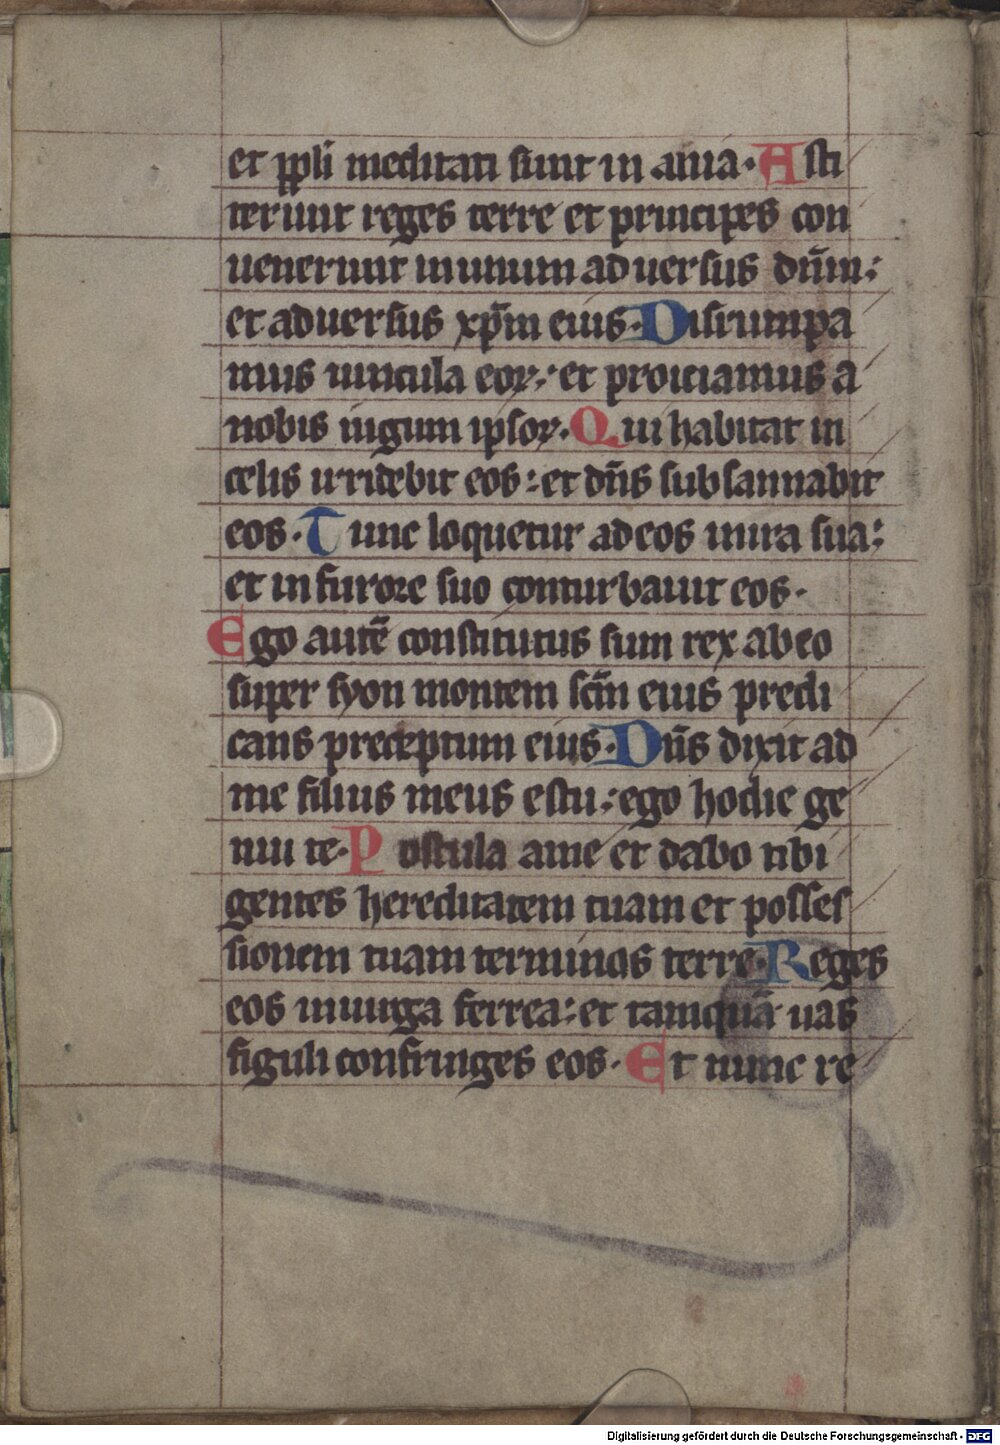 et ppli meditati sunt in ania. Asti
terunt reges terre et principes con
uenerunt in unum aduersus dn̄m:
et aduersus xp̄m eius. Disrumpa
mus uincula eoꝝ: et proiciamus a
nobis iugum ipsoꝝ. Qui habitat in
celis irridebit eos: et dn̄s subsannabit
eos. Tunc loquetur ad eos in ira sua:
et in furore suo conturbauit eos.
Ego autē constitutus sum rex ab eo
super syon montem sc̄m eius predi
cans preceptum eius. Dn̄s dixit ad
me filius meus es tu: ego hodie ge
nui te. Postula a me et dabo tibi
gentes hereditatem tuam et posses
sionem tuam terminos terre. Reges
eos in uirga ferrea: et tamquā uas
figuli confringes eos. Et nunc re
Digitalisierung gefördert durch die Deutsche Forschungsgemeinschaft - DFG